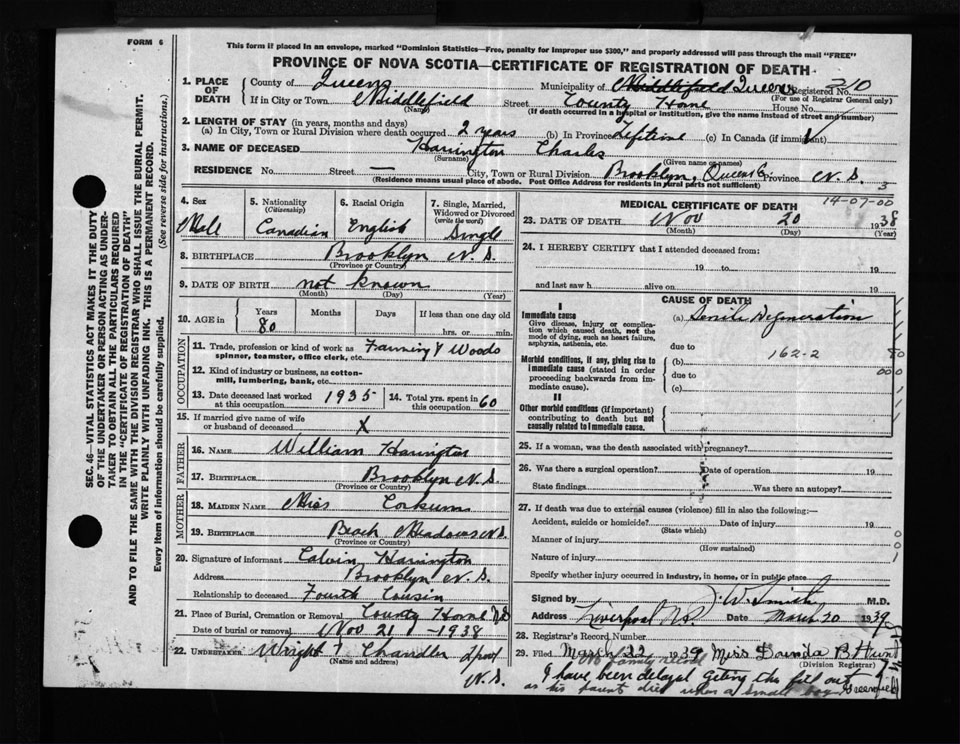 FORM 6
This form if placed in an envelope, marked "Dominion Statistics—Free, penalty for improper use $300," and properly addressed will pass through the mail "FREE"
PROVINCE OF NOVA SCOTIA—CERTIFICATE OF REGISTRATION OF DEATH
1. PLACE OF DEATH
County of Queens
Municipality of Middlefield Queens
Registered No. 210
(For use of Registrar General only)
If in City or Town Middlefield
(Name)
Street County Home House No.
(If death occurred in a hospital or institution, give the name instead of street and number)
2. LENGTH OF STAY (in years, months and days)
(a) In City, Town or Rural Division where death occurred 2 years (b) In Province Lifetime (c) In Canada (if immigrant)
3. NAME OF DECEASED Harrington Charles
(Surname) (Given name or names)
RESIDENCE No. Street — City, Town or Rural Division Brooklyn, Queens Co. Province N. S.
(Residence means usual place of abode. Post Office Address for residents in rural parts not sufficient)
3
4. Sex Male
5. Nationality (Citizenship) Canadian
6. Racial Origin English
7. Single, Married, Widowed or Divorced (write the word) Single
8. BIRTHPLACE Brooklyn N. S.
(Province or Country)
9. DATE OF BIRTH not known
(Month) (Day) (Year)
10. AGE in Years 80 Months Days If less than one day old hrs. or min.
OCCUPATION
11. Trade, profession or kind of work as spinner, teamster, office clerk, etc. Farming & Woods
12. Kind of industry or business, as cotton-mill, lumbering, bank, etc.
13. Date deceased last worked at this occupation 1935
14. Total yrs. spent in this occupation 60
15. If married give name of wife or husband of deceased X
FATHER
16. NAME William Harrington
17. BIRTHPLACE Brooklyn N. S.
(Province or Country)
MOTHER
18. MAIDEN NAME Miss Corkum
19. BIRTHPLACE Beach Meadows N. S.
(Province or Country)
20. Signature of informant Calvin Harrington
Address Brooklyn N. S.
Relationship to deceased Fourth Cousin
21. Place of Burial, Cremation or Removal County Home N S
Date of burial or removal Nov 21 -1938
22. UNDERTAKER Wright T Chandler Lpool
(Name and address)
N. S.
14-07-00
MEDICAL CERTIFICATE OF DEATH
23. DATE OF DEATH Nov 20 1938
(Month) (Day) (Year)
24. I HEREBY CERTIFY that I attended deceased from:
19 to 19
and last saw h alive on 19
CAUSE OF DEATH
I
Immediate cause
Give disease, injury or complication which caused death, not the mode of dying, such as heart failure, asphyxia, asthenia, etc.
(a) Senile Degeneration
due to
Morbid conditions, if any, giving rise to immediate cause (stated in order proceeding backwards from immediate cause).
(b) 162-2
due to
(c)
80
000
II
Other morbid conditions (if important) contributing to death but not causally related to immediate cause.
25. If a woman, was the death associated with pregnancy?
26. Was there a surgical operation? Date of operation 19
State findings Was there an autopsy?
27. If death was due to external causes (violence) fill in also the following:—
Accident, suicide or homicide? Date of injury 19
(State which)
Manner of injury
(How sustained)
Nature of injury
Specify whether injury occurred in industry, in home, or in public place
Signed by J. W. Smith M.D.
Address Liverpool N.S. Date March 20 1939
28. Registrar's Record Number
29. Filed March 22 1939 Miss B Hunt
(Division Registrar)
No family record
I have been delayed geting this fill out
as his parent died when a small boy
Greenfield
SEC. 46—VITAL STATISTICS ACT MAKES IT THE DUTY OF THE UNDERTAKER OR PERSON ACTING AS UNDERTAKER TO OBTAIN ALL THE PARTICULARS REQUIRED IN THE "CERTIFICATE OF REGISTRATION OF DEATH" AND TO FILE THE SAME WITH THE DIVISION REGISTRAR WHO SHALL ISSUE THE BURIAL PERMIT.
WRITE PLAINLY WITH UNFADING INK. THIS IS A PERMANENT RECORD.
Every item of information should be carefully supplied. (See reverse side for instructions.)